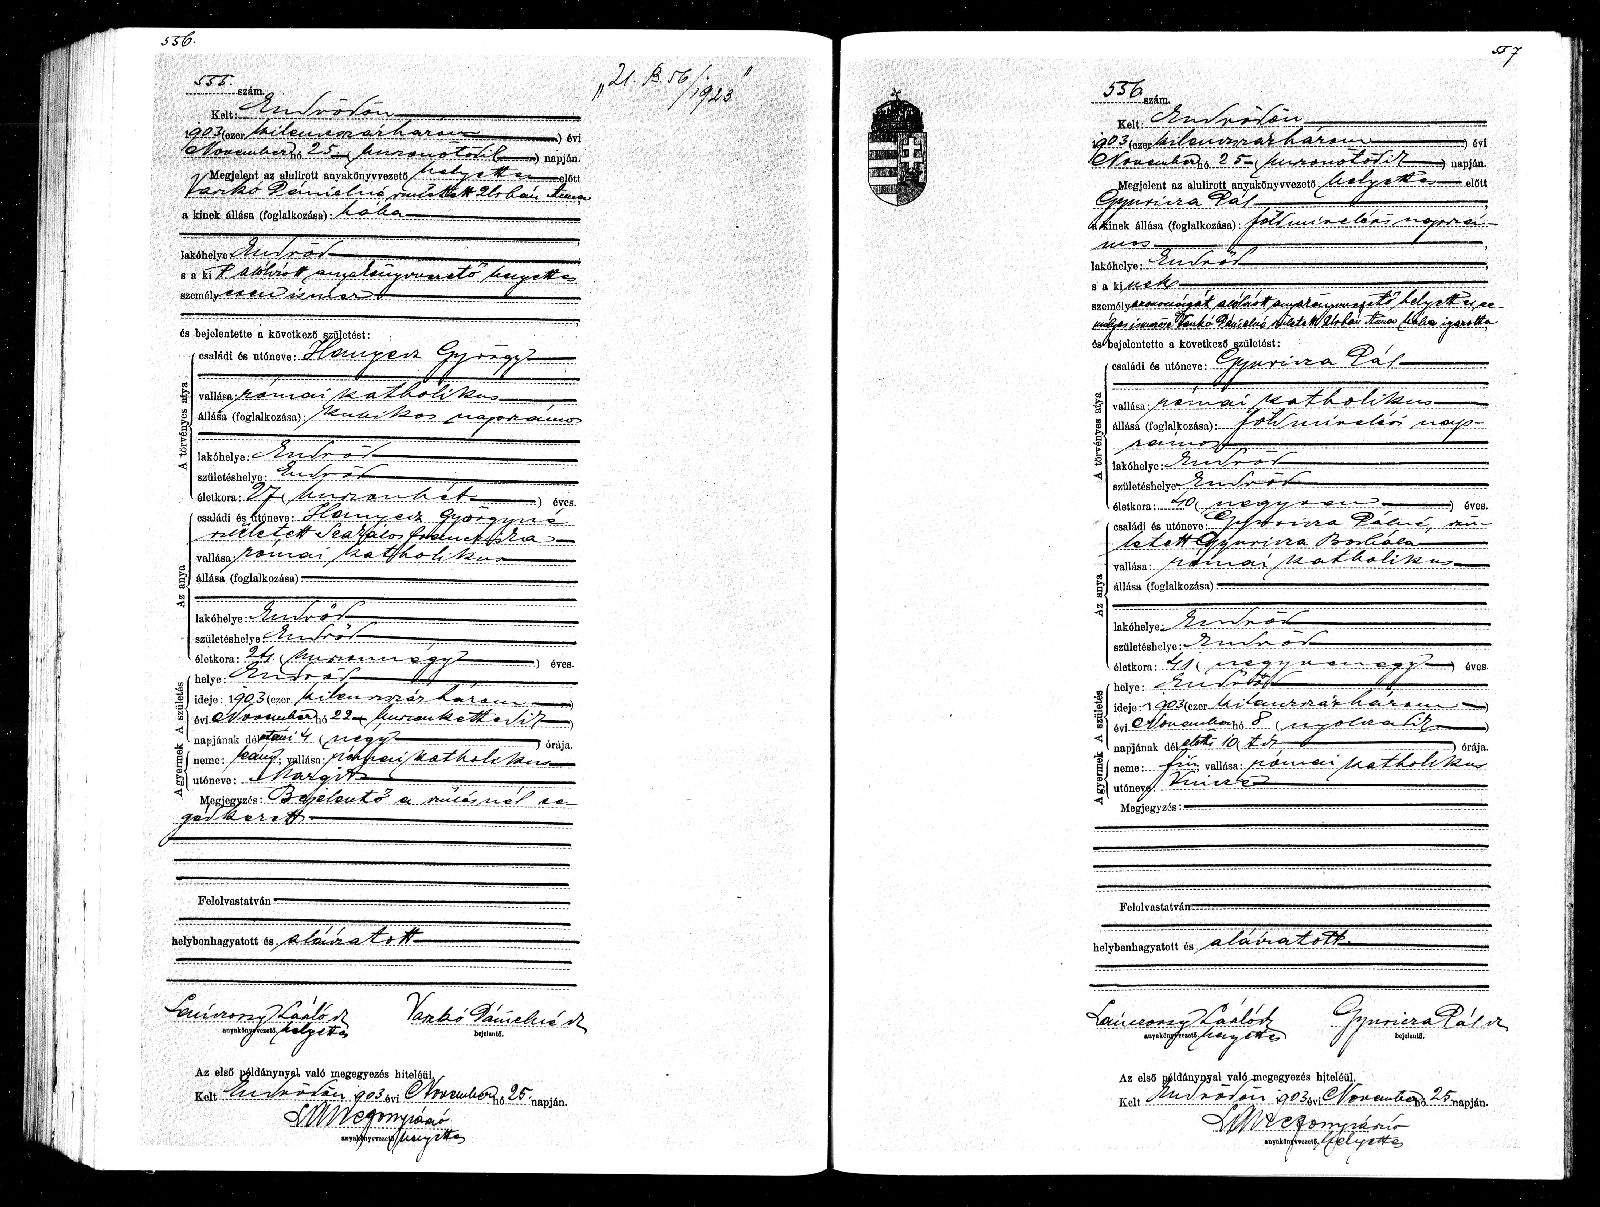 556.
„21. B. 56/1923"
555. szám.
Kelt: Endrődön
1903 (ezer kilencszázhárom) évi
November hó 25 (huszonötödik) napján.
Megjelent az alulirott anyakönyvvezető helyettes előtt
Varkó Dánielné született Urbán Anna
a kinek állása (foglalkozása): bába
lakóhelye Endrőd
s a kit alólirott anyakönyvvezető helyettes
személyesen ismer
és bejelentette a következő születést:
A törvényes atya
családi és utóneve: Hanyecz György
vallása: római katholikus
állása (foglalkozása): kubikos napszámos
lakóhelye: Endrőd
születéshelye: Endrőd
életkora: 27 (huszonhét) éves.
Az anya
családi és utóneve: Hanyecz Györgyné
született Szakálos Franciska
vallása: római katholikus
állása (foglalkozása)
lakóhelye: Endrőd
születéshelye: Endrőd
életkora: 24 (huszonnégy) éves.
A gyermek A születés
helye: Endrőd
ideje: 1903 (ezer kilencszázhárom)
évi November hó 22 (huszonkettedik)
napjának délutáni 4 (négy) órája.
neme: leány; vallása: római katholikus
utóneve: Margit
Megjegyzés: Bejelentő a szülésnél se-
gédkezett
Felolvastatván
helybenhagyatott és aláiratott
Varkó Dánielné
anyakönyvvezető helyettes
bejelentő.
Az első példánynyal való megegyezés hiteléül.
Kelt Endrődön 1903 évi November hó 25 napján.
anyakönyvvezető helyettes
557
556 szám.
Kelt: Endrődön
1903 (ezer kilencszázhárom) évi
November hó 25 (huszonötödik) napján.
Megjelent az alulirott anyakönyvvezető helyettes előtt
Gyuricza Pál
a kinek állása (foglalkozása): földmivelési napszá-
mos
lakóhelye: Endrőd
s a kinek
személyazonosságát alólirott anyakönyvvezető helyettes sze-
mélyes ismerőse Varkó Dánielné született Urbán Anna bába igazolta
és bejelentette a következő születést:
A törvényes atya
családi és utóneve: Gyuricza Pál
vallása: római katholikus
állása (foglalkozása): földmivelési nap-
számos
lakóhelye: Endrőd
születéshelye: Endrőd
életkora: 40 (negyven) éves.
Az anya
családi és utóneve: Gyuricza Pálné, szü-
letett Gyuricza Borbála
vallása: római katholikus
állása (foglalkozása)
lakóhelye: Endrőd
születéshelye: Endrőd
életkora: 41 (negyvenegy) éves.
A gyermek A születés
helye: Endrőd
ideje: 1903 (ezer kilencszázhárom)
évi November hó 8 (nyolcadik)
napjának délelőtti 10 (tíz) órája.
neme: fiú; vallása: római katholikus
utóneve: Vincze
Megjegyzés:
Felolvastatván
helybenhagyatott és aláiratott
Gyuricza Pál
anyakönyvvezető helyettes
bejelentő.
Az első példánynyal való megegyezés hiteléül.
Kelt Endrődön 1903 évi November hó 25 napján.
anyakönyvvezető helyettes